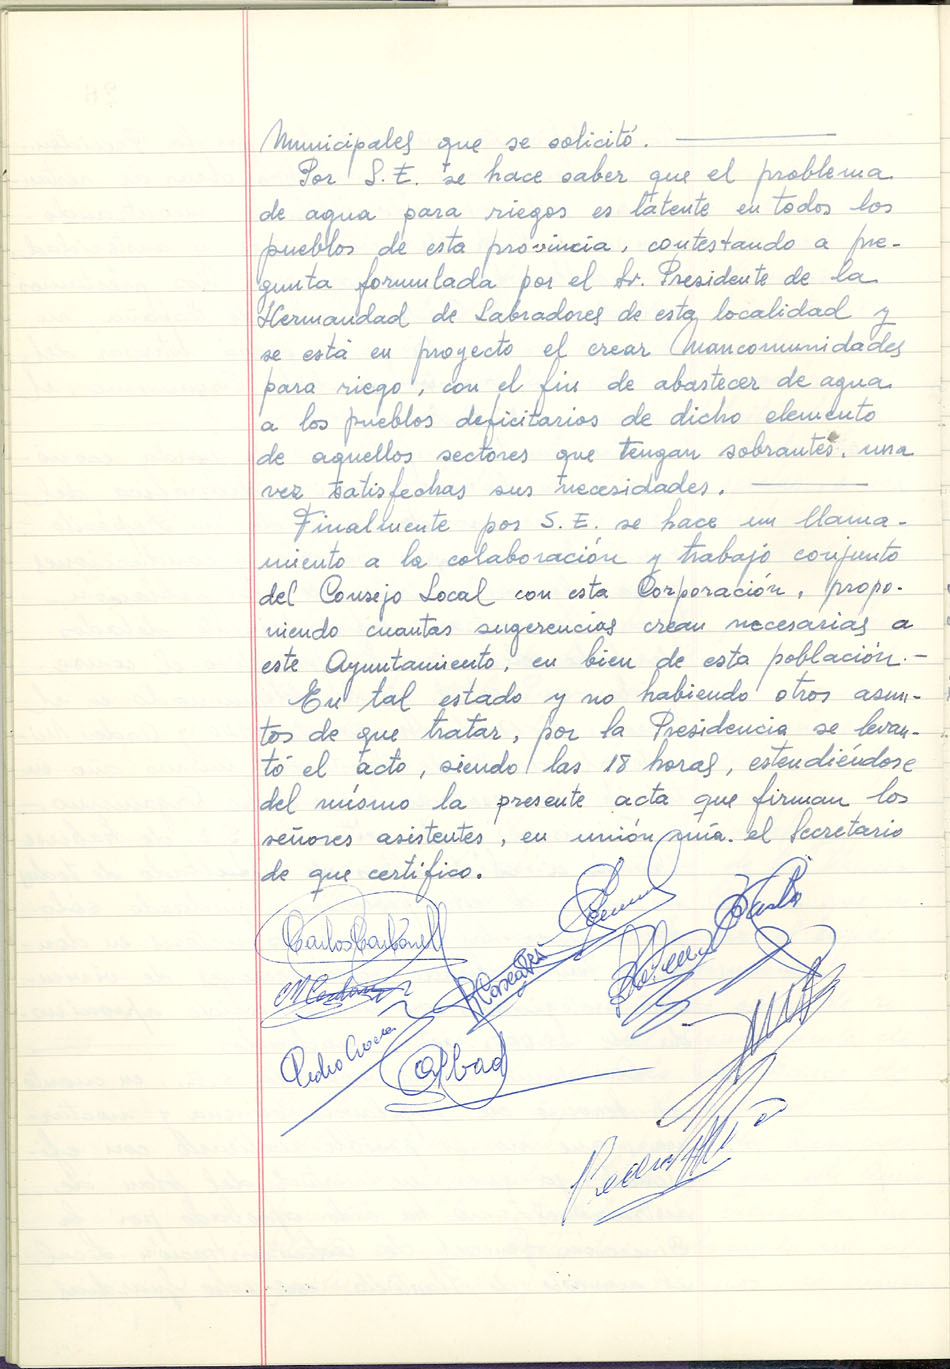 Municipales que se solicitó. ————
Por S. E. se hace saber que el problema
de agua para riegos es latente en todos los
pueblos de esta provincia, contestando a pre-
gunta formulada por el Sr. Presidente de la
Hermandad de Labradores de esta localidad y
se está en proyecto el crear Mancomunidades
para riego, con el fin de abastecer de agua
a los pueblos deficitarios de dicho elemento
de aquellos sectores que tengan sobrantes, una
vez satisfechas sus necesidades. ————
Finalmente por S. E. se hace un llama-
miento a la colaboración y trabajo conjunto
del Consejo Local con esta Corporación, propo-
niendo cuantas sugerencias crean necesarias a
este Ayuntamiento, en bien de esta población.-
En tal estado y no habiendo otros asun-
tos de que tratar, por la Presidencia se levan-
tó el acto, siendo las 18 horas, estendiéndose
del mismo la presente acta que firman los
señores asistentes, en unión mía. el Secretario
de que certifico.
Carlos Carbonell
Pedro
Abad